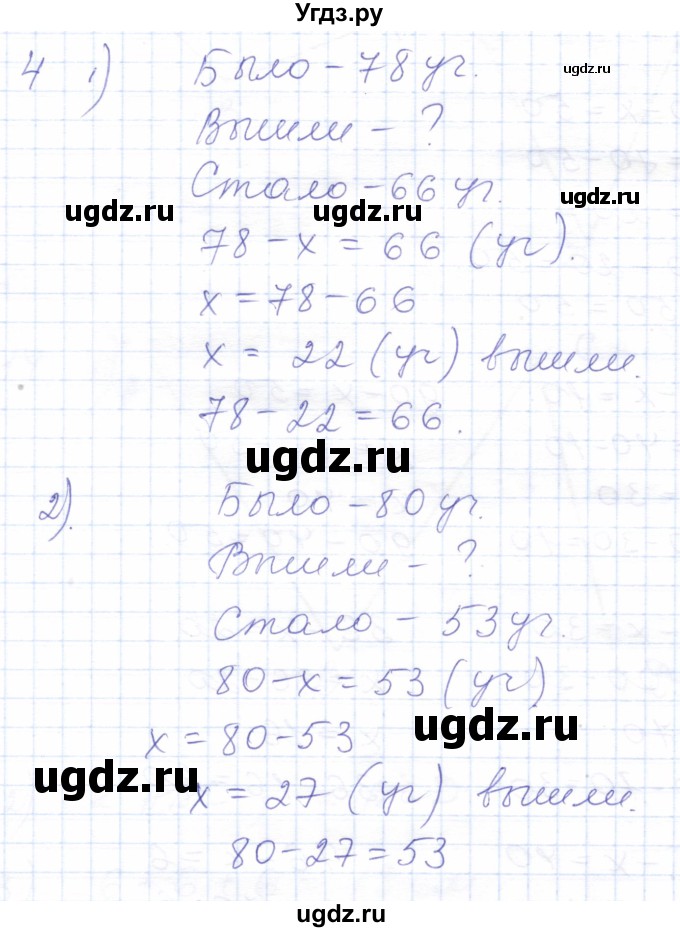 Угдз.ру
4 1) Было - 78 уг.
ugdz.ru
Вышли - ?
Стало - 66 уг.
ugdz.ru ugdz.ru ugdz.ru
78 - x = 66 (уг).
x = 78 - 66
x = 22 (уг) вышли.
78 - 22 = 66.
ugdz.ru
2). Было - 80 уг.
Вышли - ?
Стало - 53 уг.
80 - x = 53 (уг)
ugdz.ru
x = 80 - 53
ugdz.ru
x = 27 (уг) вышли.
80 - 27 = 53
ugdz.ru